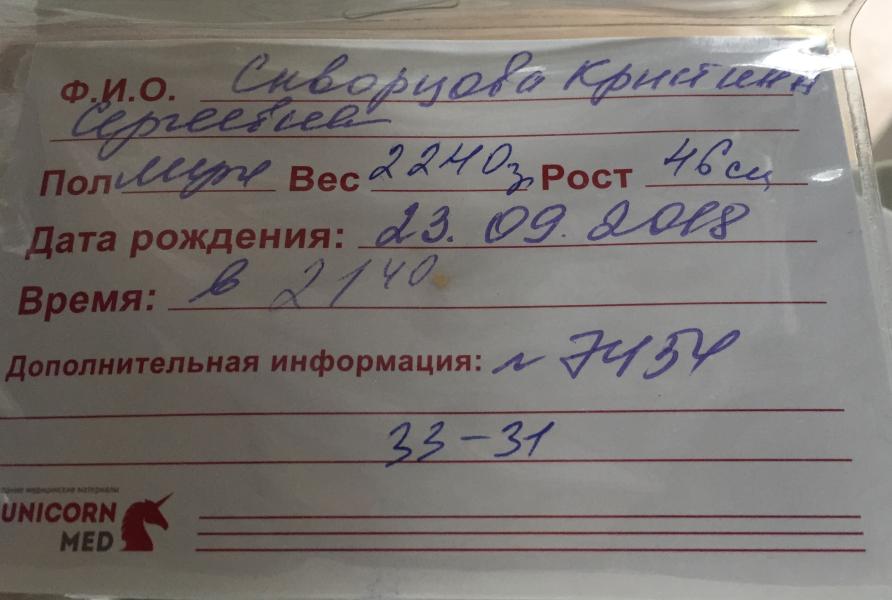 Ф.И.О. Скворцова Кристина
Сергеевна
Пол муж Вес 2240г Рост 46 см
Дата рождения: 23.09.2018
Время: в 21 40
Дополнительная информация: № 7454
33-31
UNICORN
MED